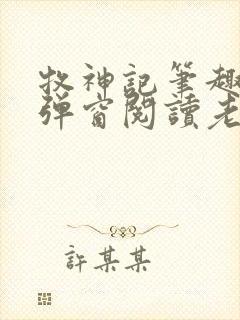 牧神記筆趣
彈窗閱讀老
許某某